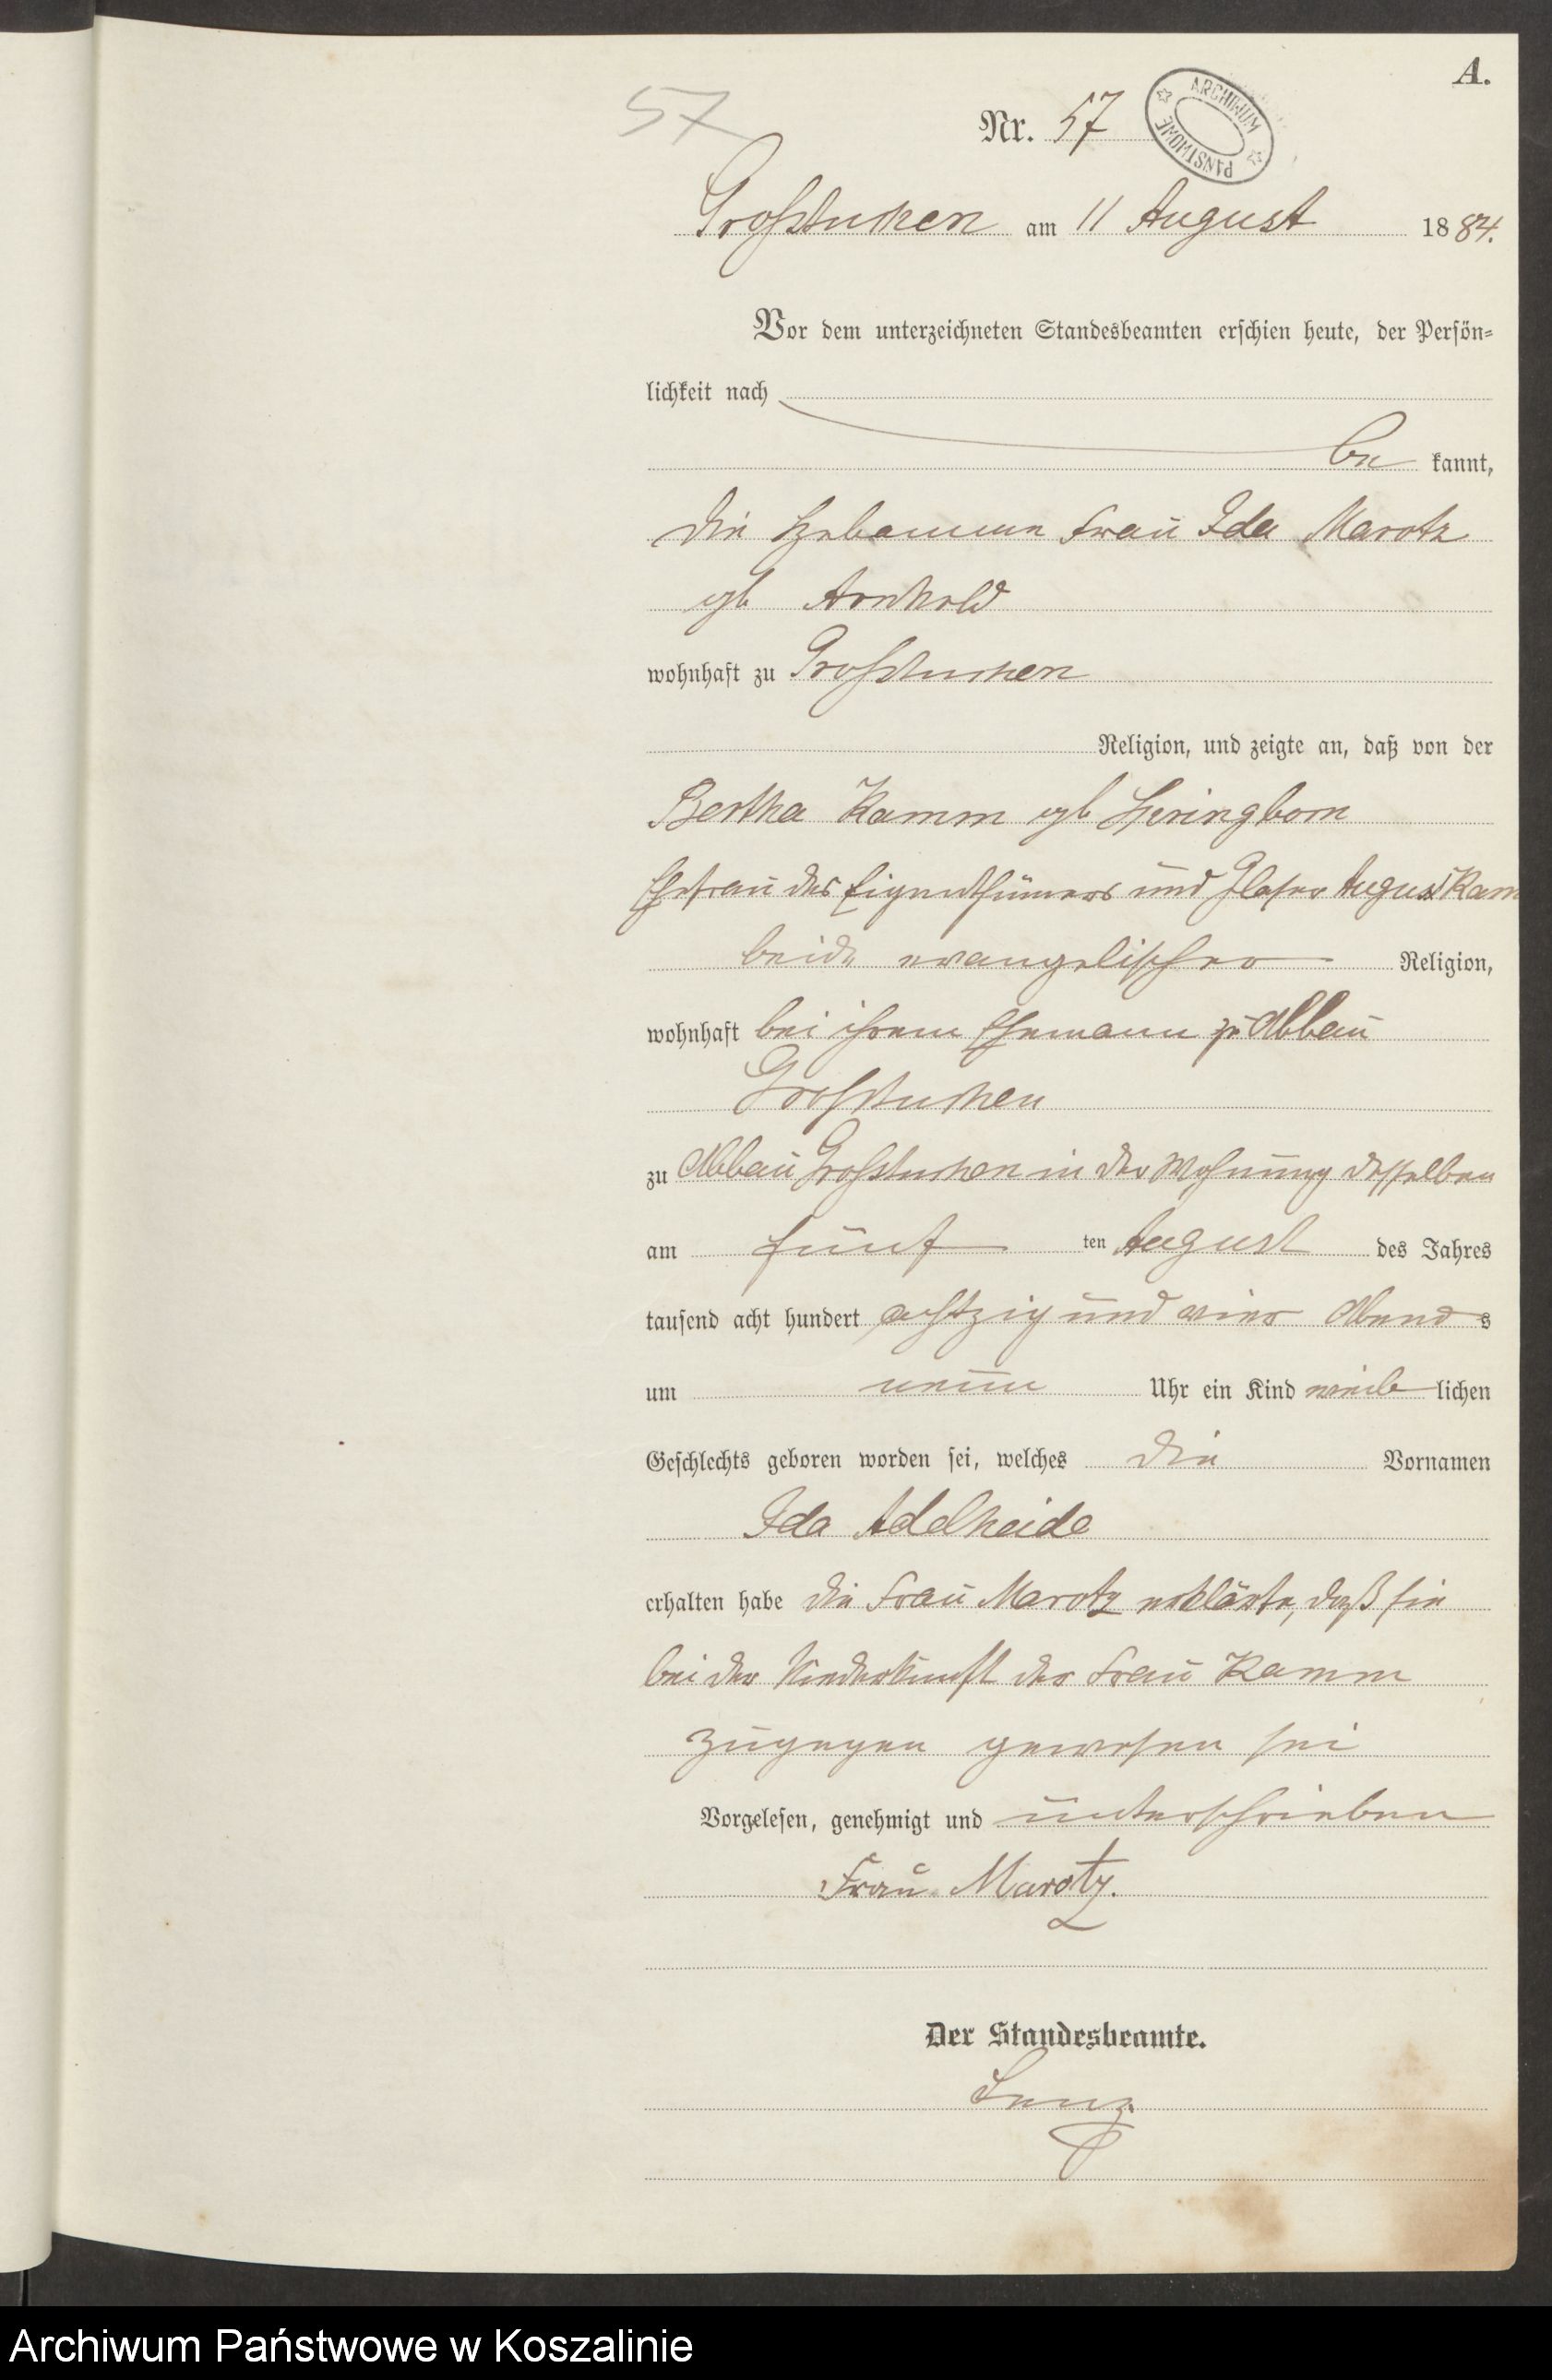 A.
57
Nr. 57
ARCHIWUM PAŃSTWOWE
Großtuchen am 11 August 1884.
Vor dem unterzeichneten Standesbeamten erschien heute, der Persön-
lichkeit nach
be kannt,
die Hebamme Frau Ida Marotz
geb Arnhold
wohnhaft zu Großtuchen
Religion, und zeigte an, daß von der
Bertha Kamm geb Heringborn
Ehefrau des Eigenthümers und Glaser August Kam
beide evangelischer Religion,
wohnhaft bei ihrem Ehemann zu Abbau
Großtuchen
zu Abbau Großtuchen in der Wohnung desselben
am fünf ten August des Jahres
tausend acht hundert achtzig und vier Abend s
um neun Uhr ein Kind weib lichen
Geschlechts geboren worden sei, welches die Vornamen
Ida Adelheide
erhalten habe die Frau Marotz erklärte, daß sie
bei der Niederkunft der Frau Kamm
zugegen gewesen sei
Vorgelesen, genehmigt und unterschrieben
Frau Marotz.
Der Standesbeamte.
Lenz.
Archiwum Państwowe w Koszalinie